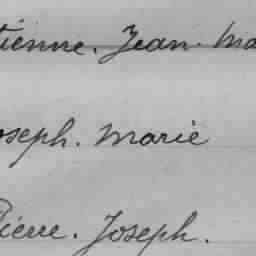 tienne. Jean. Ma
oseph. Marie
Pierre. Joseph.